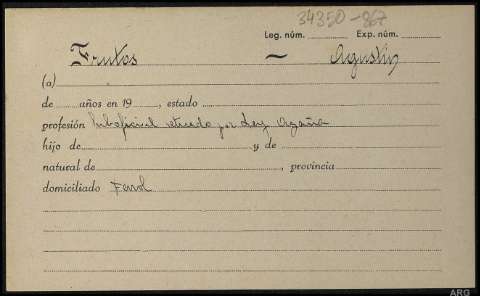 34350-867
Leg. núm. Exp. núm.
Frutos — Agustín
(a)
de años en 19 , estado
profesión Suboficial retirado por Ley Azaña
hijo de y de
natural de , provincia
domiciliado Ferrol
ARG